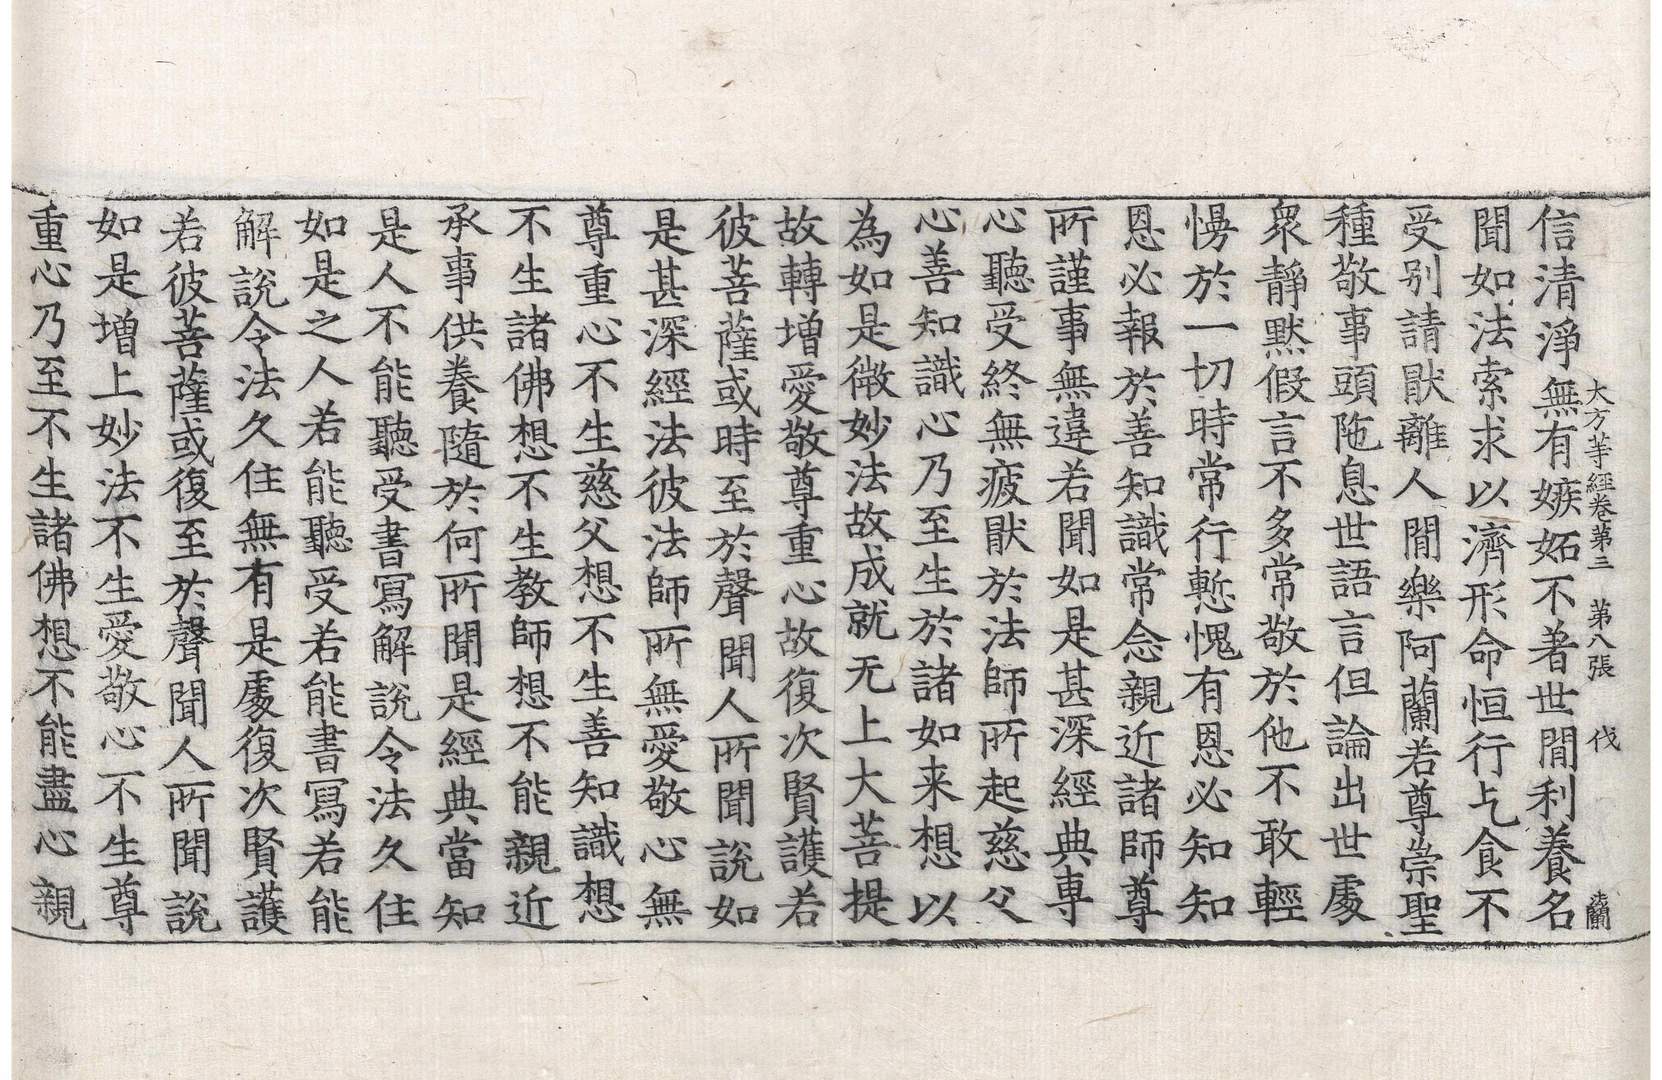 大方等經卷第三　第八張　伐
信清淨無有嫉妬不著世間利養名
聞如法索求以濟形命恒行乞食不
受別請猒離人間樂阿蘭若尊崇聖
種敬事頭陁息世語言但論出世處
衆靜默假言不多常敬於他不敢輕
慢於一切時常行慙愧有恩必知知
恩必報於善知識常念親近諸師尊
所謹事無違若聞如是甚深經典專
心聽受終無疲猒於法師所起慈父
心善知識心乃至生於諸如来想以
為如是微妙法故成就无上大菩提
故轉增愛敬尊重心故復次賢護若
彼菩薩或時至於聲聞人所聞說如
是甚深經法彼法師所無愛敬心無
尊重心不生慈父想不生善知識想
不生諸佛想不生教師想不能親近
承事供養隨於何所聞是經典當知
是人不能聽受書寫解說令法久住
如是之人若能聽受若能書寫若能
解說令法久住無有是處復次賢護
若彼菩薩或復至於聲聞人所聞說
如是增上妙法不生愛敬心不生尊
重心乃至不生諸佛想不能盡心親